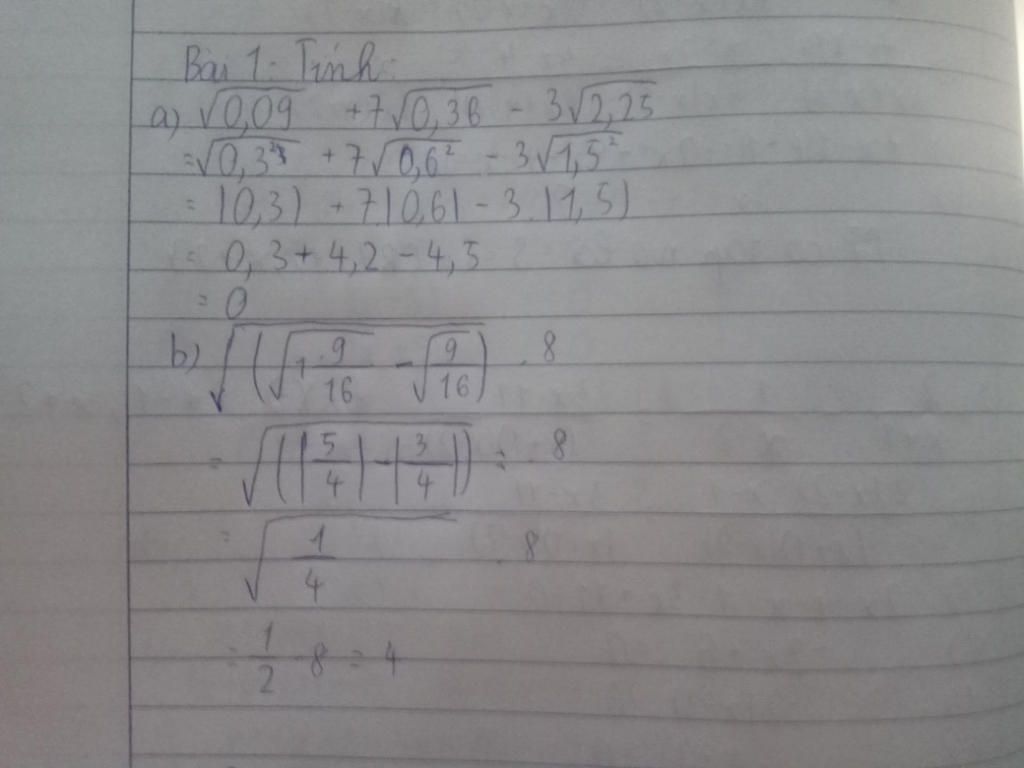 Bài 1: Tính:
a) √0,09 + 7√0,36 - 3√2,25
= √0,3² + 7√0,6² - 3√1,5²
= |0,3| + 7|0,6| - 3.|1,5|
= 0,3 + 4,2 - 4,5
= 0
b) √(√(1 9/16) - √(9/16)) . 8
= √(|5/4| - |3/4|) . 8
= √(1/4) . 8
= 1/2 . 8 = 4